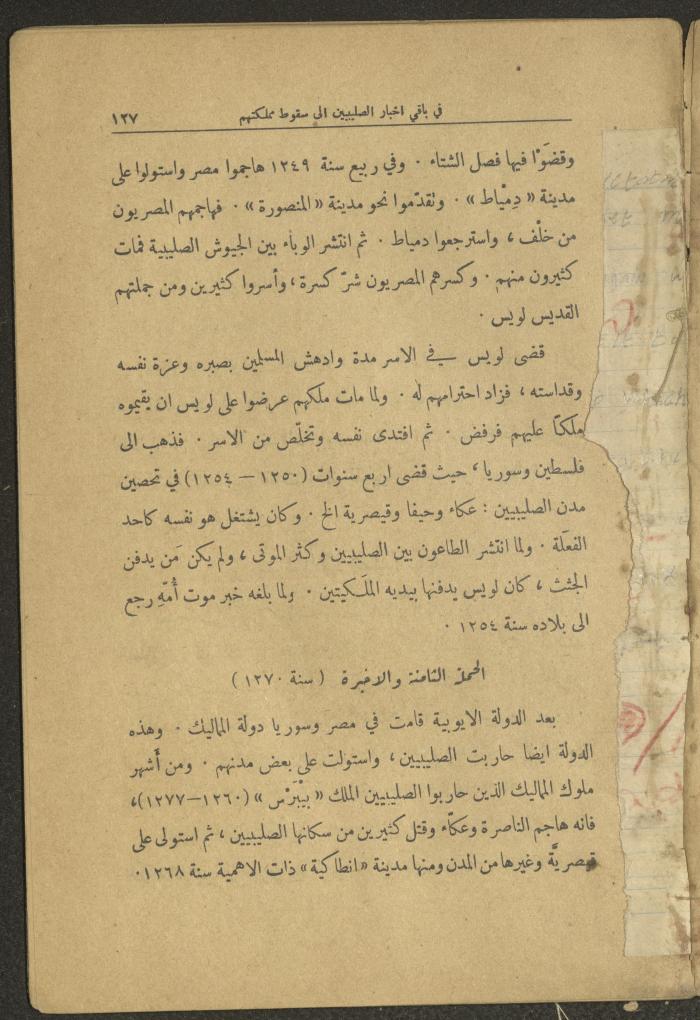 في باقي اخبار الصليبيين الى سقوط مملكتهم ١٢٧
وقضَوْا فيها فصل الشتاء . وفي ربيع سنة ١٢٤٩ هاجموا مصر واستولوا على
مدينة « دِمْياط » . وتقدّموا نحو مدينة « المنصورة » . فهاجمهم المصريون
من خلْف ، واسترجعوا دمياط . ثم انتشر الوباء بين الجيوش الصليبية فمات
كثيرون منهم . وكسرهم المصريون شرّ كسرة ، وأسروا كثيرين ومن جملتهم
القديس لويس .
قضى لويس في الاسر مدة وادهش المسلمين بصبره وعزة نفسه
وقداسته ، فزاد احترامهم له . ولما مات ملكهم عرضوا على لويس ان يقيموه
ملكاً عليهم فرفض . ثم افتدى نفسه وتخلّص من الاسر . فذهب الى
فلسطين وسوريا ، حيث قضى اربع سنوات (١٢٥٠ – ١٢٥٤) في تحصين
مدن الصليبيين : عكاء وحيفا وقيصرية الخ . وكان يشتغل هو نفسه كاحد
الفعَلة . ولما انتشر الطاعون بين الصليبيين وكثر الموتى ، ولم يكن مَن يدفن
الجثث ، كان لويس يدفنها بيديه الملَكيتين . ولما بلغه خبر موت أُمّهِ رجع
الى بلاده سنة ١٢٥٤ .
الحملة الثامنة والاخيرة ( سنة ١٢٧٠ )
بعد الدولة الايوبية قامت في مصر وسوريا دولة المماليك . وهذه
الدولة ايضا حاربت الصليبيين ، واستولت على بعض مدنهم . ومن أشهر
ملوك المماليك الذين حاربوا الصليبيين الملك « بيْبَرْس » (١٢٦٠–١٢٧٧)،
فانه هاجم الناصرة وعكّاء وقتل كثيرين من سكانها الصليبيين ، ثم استولى على
قيصريَّة وغيرها من المدن ومنها مدينة «انطاكية» ذات الاهمية سنة ١٢٦٨ .